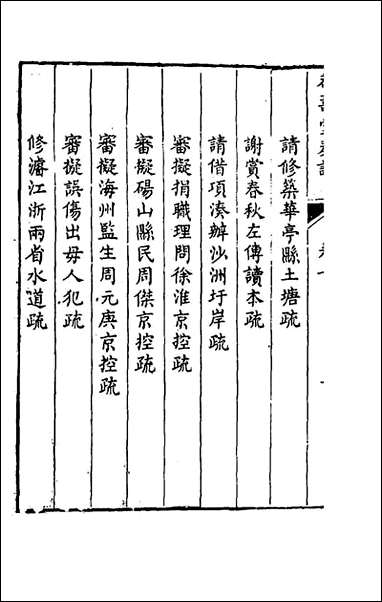 請修築華亭縣土塘疏
謝賞春秋左傳讀本疏
請借項湊辦沙洲圩岸疏
審擬捐職理問徐淮京控疏
審擬碭山縣民周傑京控疏
審擬海州監生周元庚京控疏
審擬誤傷出毋人犯疏
修濬江浙兩省水道疏